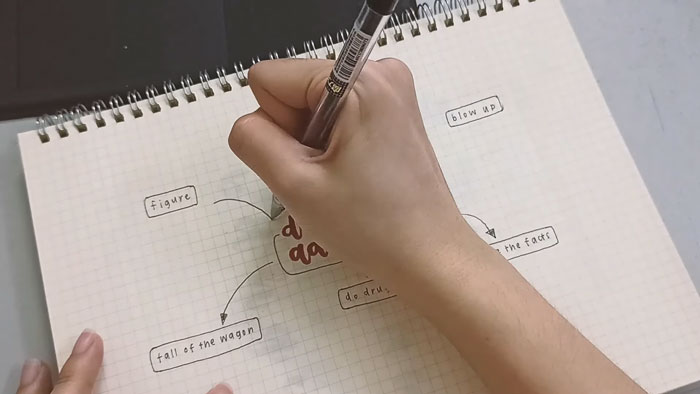 blow up
figure
d
aa
the facts
do dru
fall of the wagon